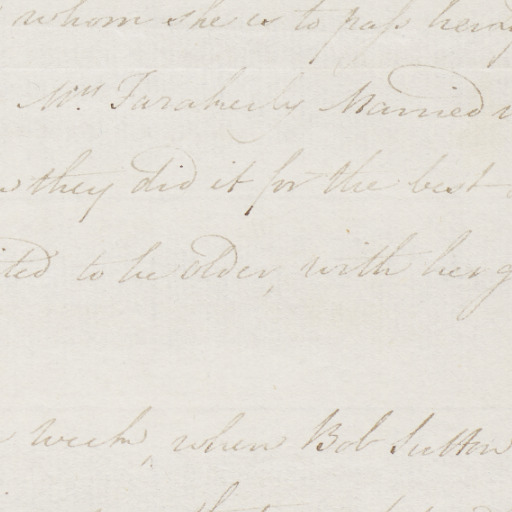 whom she is to pass
Mrs. Married
they did it for the best
to be older, with her
week, when Bob Sutton